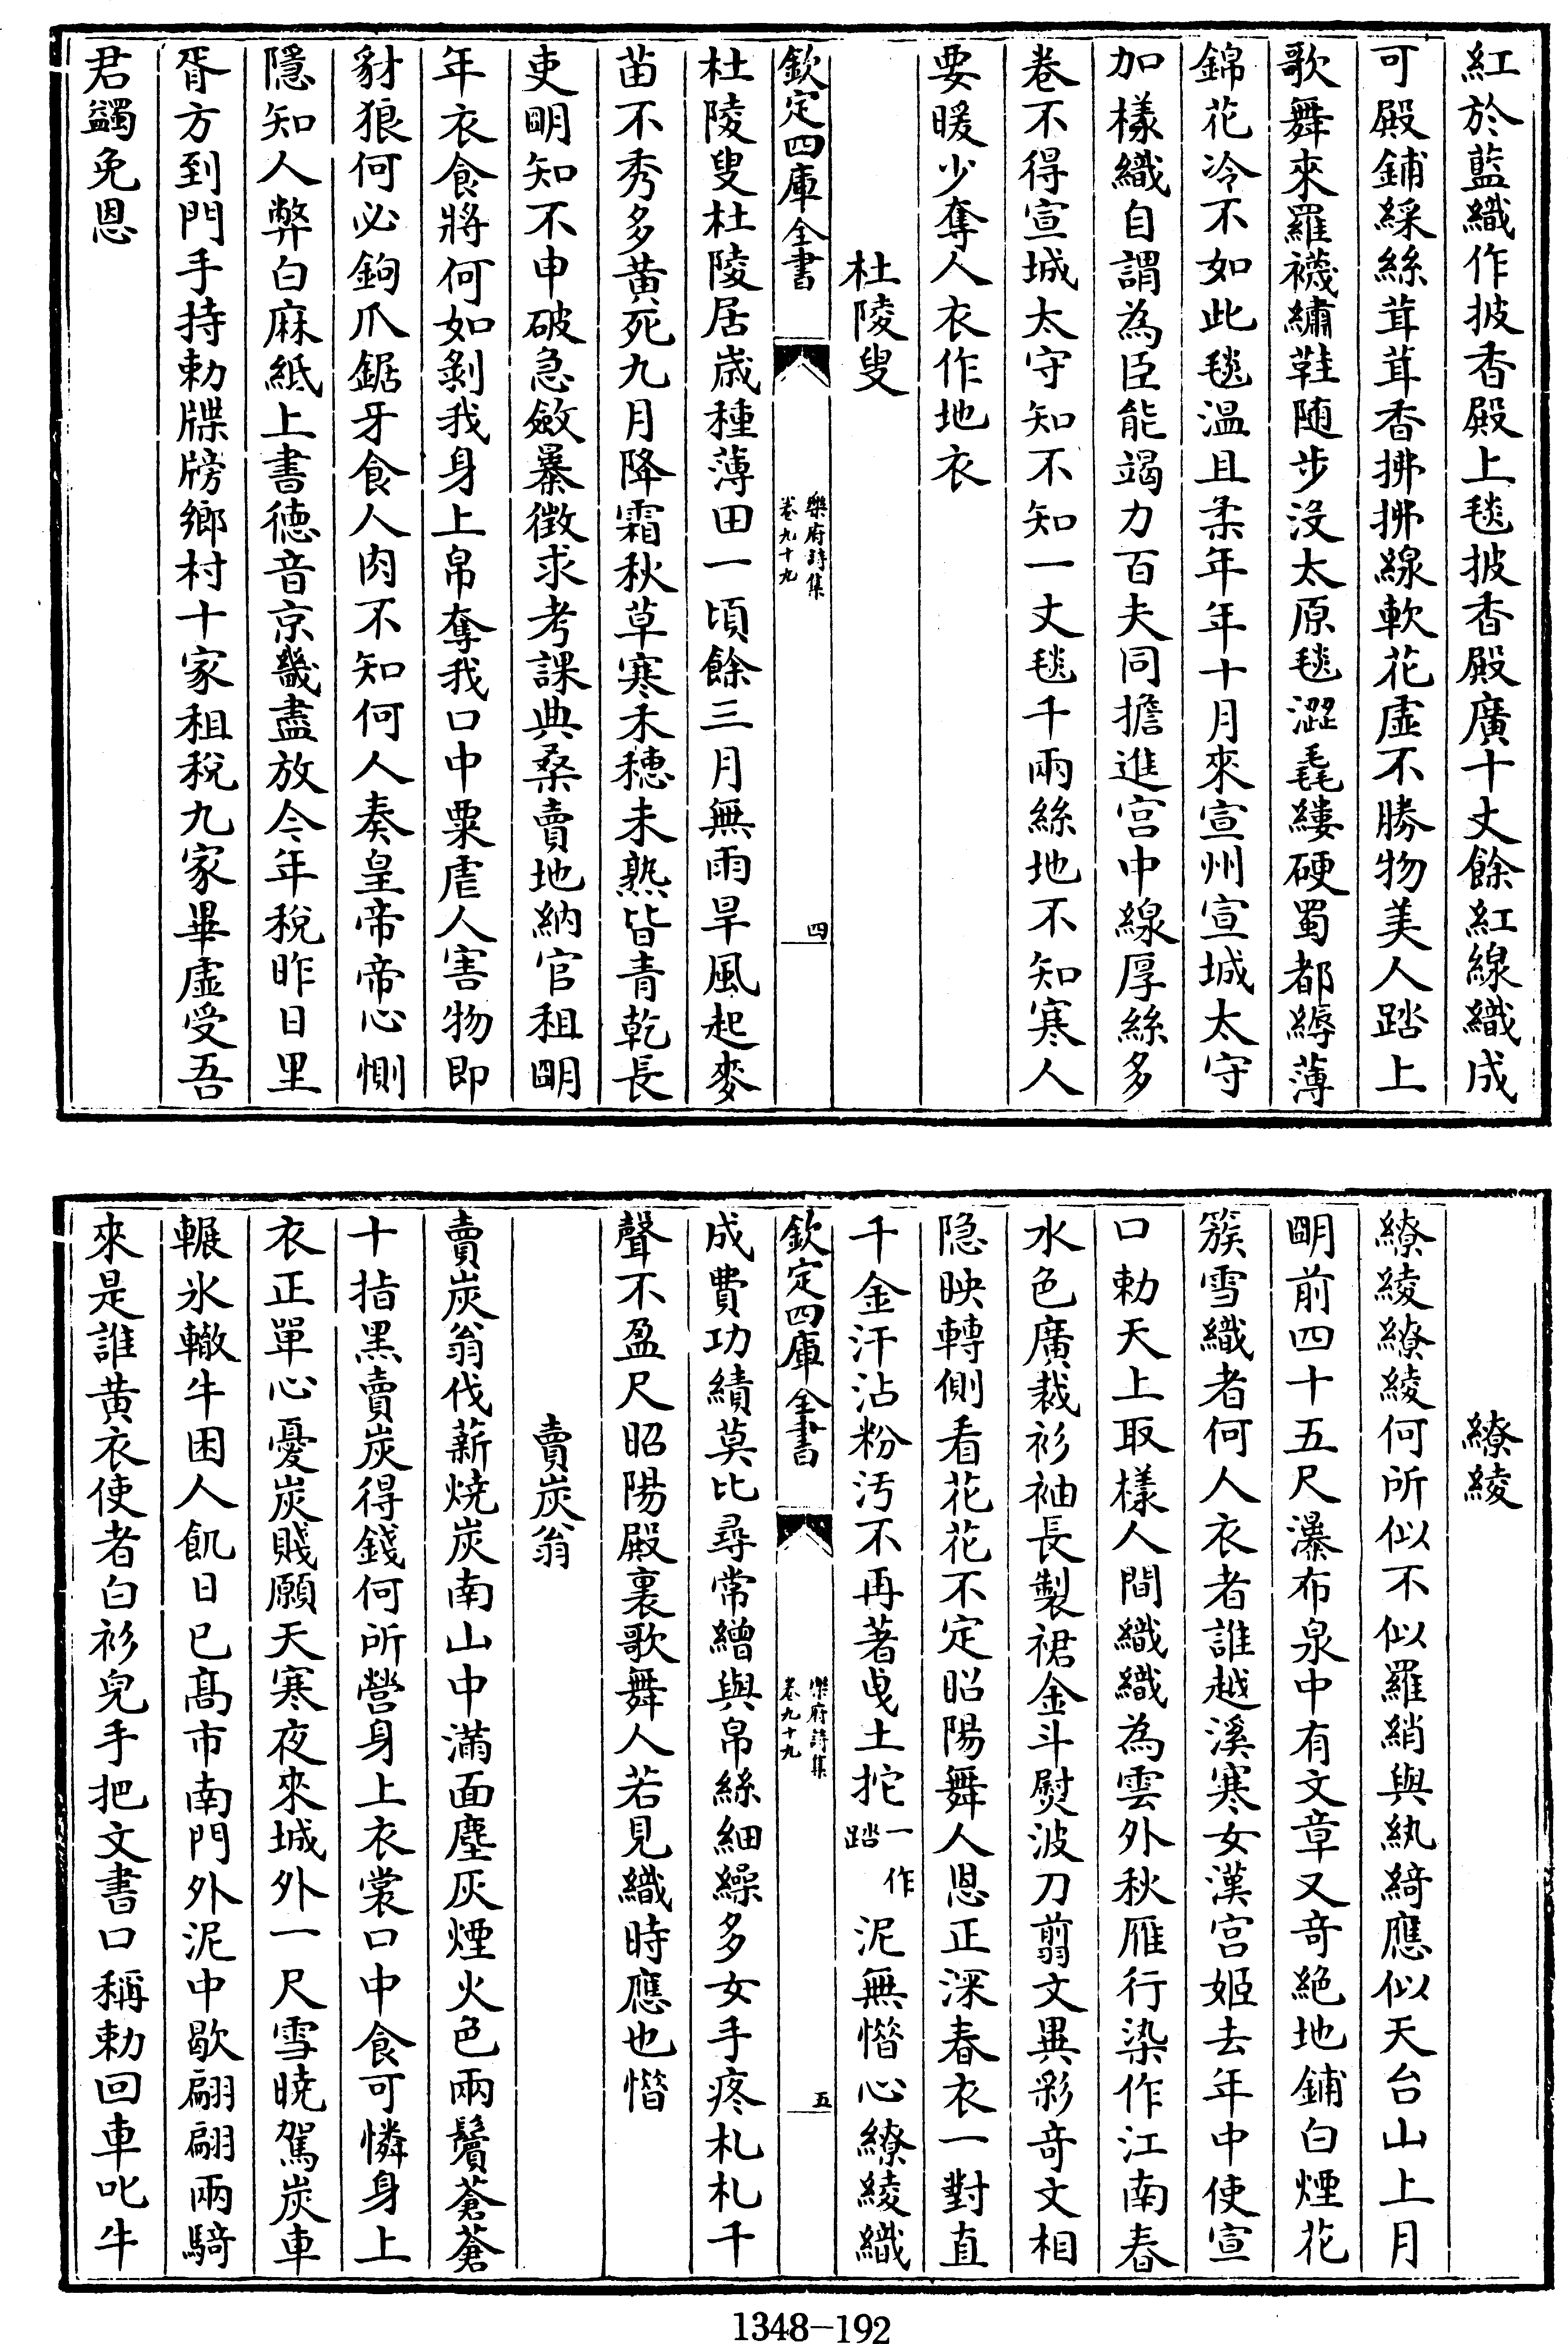 紅於藍織作披香殿上毯披香殿廣十丈餘紅線織成
可殿鋪綵絲茸茸香拂拂線軟花虛不勝物美人踏上
歌舞來羅襪繡鞋随步沒太原毯澀毳縷硬蜀都縟薄
錦花冷不如此毯温且柔年年十月來宣州宣城太守
加樣織自謂為臣能竭力百夫同擔進宫中線厚絲多
卷不得宣城太守知不知一丈毯千兩絲地不知寒人
要暖少奪人衣作地衣
杜陵叟
欽定四庫全書
樂府詩集
卷九十九
四
杜陵叟杜陵居歲種薄田一頃餘三月無雨旱風起麥
苗不秀多黄死九月降霜秋草寒禾穗未熟皆青乾長
吏明知不申破急斂暴徵求考課典桑賣地納官租明
年衣食將何如剝我身上帛奪我口中粟虐人害物即
豺狼何必鉤爪鋸牙食人肉不知何人奏皇帝帝心惻
隱知人弊白麻紙上書徳音京畿盡放今年稅昨日里
胥方到門手持勅牒牓鄉村十家租稅九家畢虛受吾
君蠲免恩
繚綾
繚綾繚綾何所似不似羅綃與紈綺應似天台山上月
明前四十五尺瀑布泉中有文章又奇絶地鋪白煙花
簇雪織者何人衣者誰越溪寒女漢宫姬去年中使宣
口勅天上取樣人間織織為雲外秋雁行染作江南春
水色廣裁衫袖長製裙金斗熨波刀翦文異彩奇文相
隐映轉側看花花不定昭陽舞人恩正深春衣一對直
千金汗沾粉汚不再著曵土拕一作踏泥無惜心繚綾織
欽定四庫全書
樂府詩集
卷九十九
五
成費功績莫比尋常繒與帛絲細繰多女手疼札札千
聲不盈尺昭陽殿裏歌舞人若見織時應也惜
賣炭翁
賣炭翁伐薪燒炭南山中滿面塵灰煙火色兩鬢蒼蒼
十指黑賣炭得錢何所營身上衣裳口中食可憐身上
衣正單心憂炭賤願天寒夜來城外一尺雪曉駕炭車
輾氷轍牛困人飢日已髙市南門外泥中歇翩翩兩騎
來是誰黄衣使者白衫兒手把文書口稱勅回車叱牛
1348-192